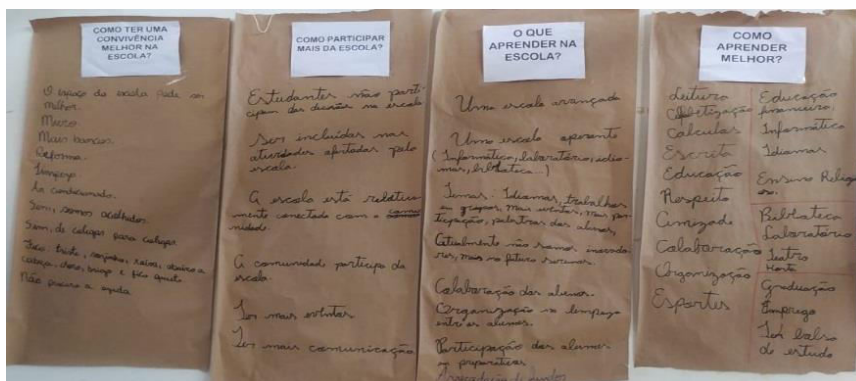 COMO TER UMA
CONVIVÊNCIA
MELHOR NA
ESCOLA?
O espaço da escola pode ser
melhor.
Micro
Mais bancos.
Reforma.
Limpeza
Ar condicionado.
Sim, somos acolhidos.
Sim, de colegas para colegas
Fico triste, sozinho, raiva, abaixo a
cabeça, choro, brigo e fico quieto
Não procuro a ajuda
COMO PARTICIPAR
MAIS DA ESCOLA?
Estudantes não parti-
cipam das decisões na escola
Ser incluídos nas
atividades ofertadas pela
escola.
A escola está relativa
mente conectada com a
nidade.
A comunidade participa da
escola.
Ter mais eventos
Ter mais comunicação
O QUE
APRENDER NA
ESCOLA?
Uma escola avançada
Uma escola
(Informática, laboratório, idio-
mas, biblioteca...)
Temas: Idiomas, trabalhos
em grupos, mais eventos, mais par
ticipação, palestras dos alunos,
Atualmente não somos inovado
res, mas no futuro seremos.
Colaboração dos alunos.
Organização na limpeza
entre os alunos.
Participação dos alunos
COMO
APRENDER
MELHOR?
Leitura
Alfabetização
Calculos
Escrita
Educação
Respeito
Amizade
Colaboração
Organização
Esportes
Educação
financeira
Informática
Idiomas
Ensino Religi
oso.
Biblioteca
Laboratório
Teatro
Horta
Graduação
Emprego
Ter bolsa
de estudo